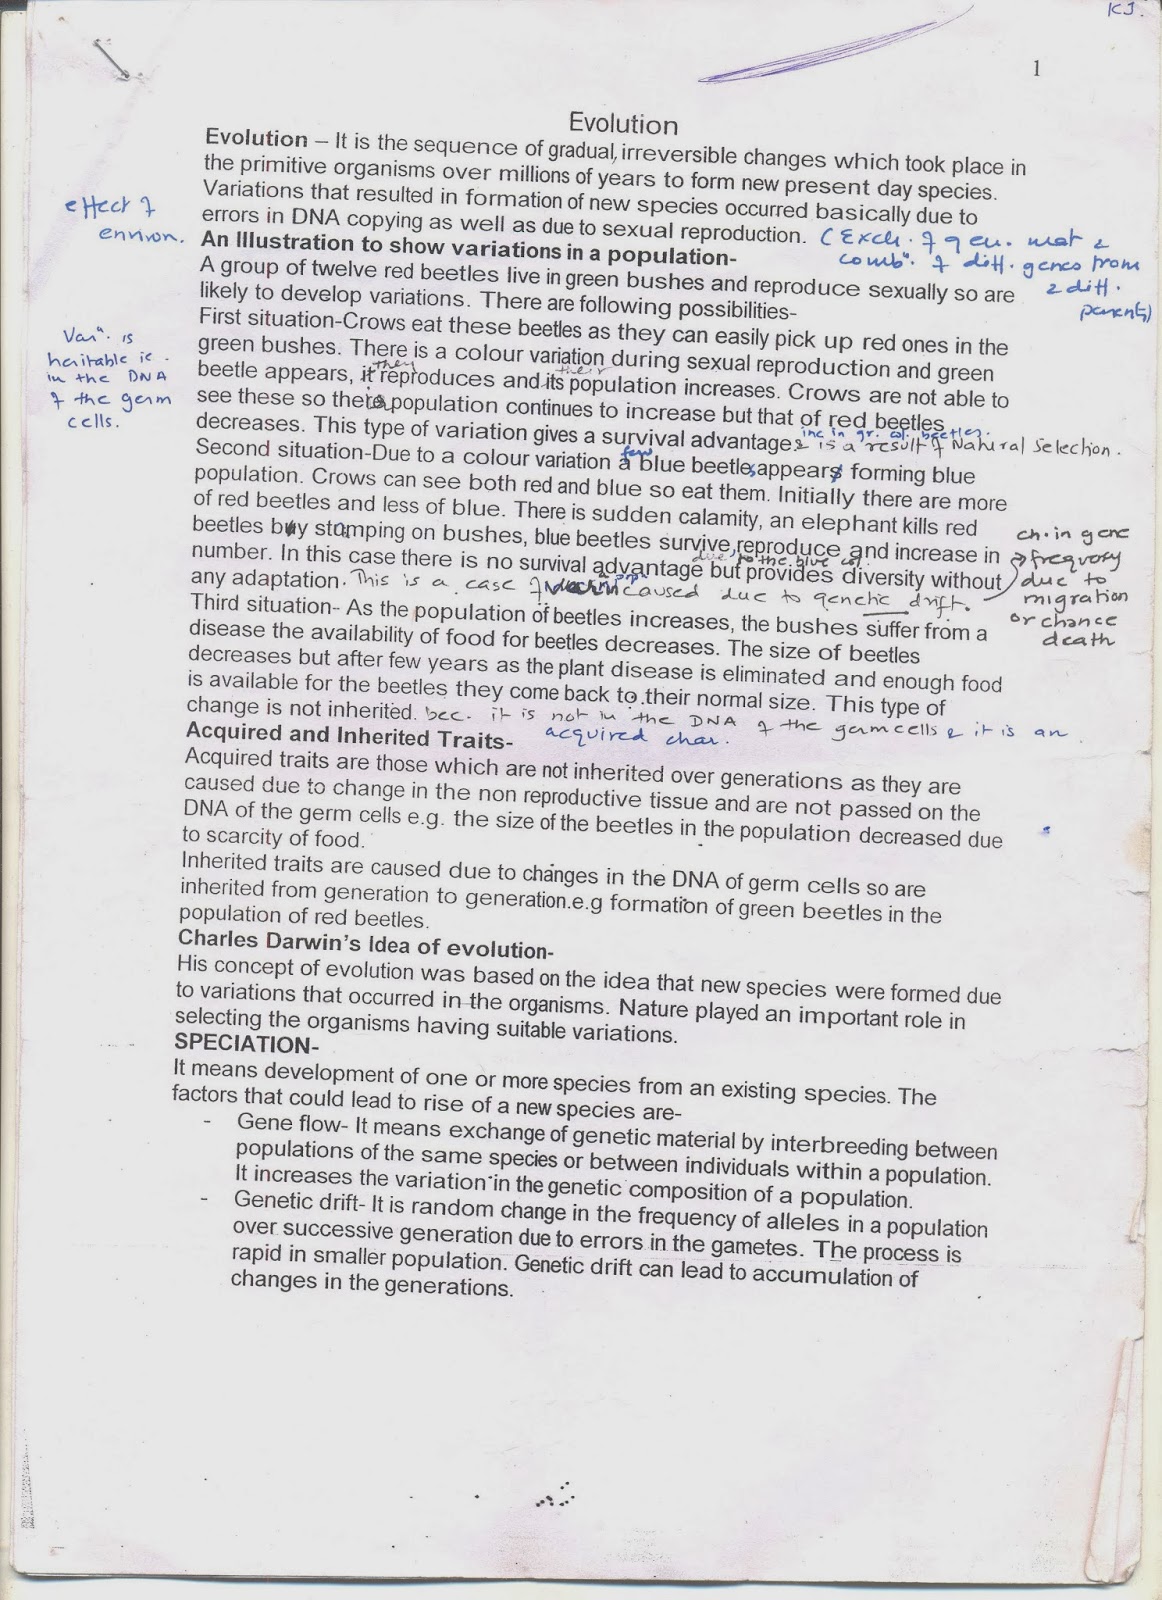 KJ.
1
Evolution
Evolution – It is the sequence of gradual, irreversible changes which took place in
the primitive organisms over millions of years to form new present day species.
Variations that resulted in formation of new species occurred basically due to
errors in DNA copying as well as due to sexual reproduction. (Exch. of gen. mat &
effect of
environ.
comb". of diff. genes from
2 diff.
parents)
An Illustration to show variations in a population-
A group of twelve red beetles live in green bushes and reproduce sexually so are
likely to develop variations. There are following possibilities-
First situation-Crows eat these beetles as they can easily pick up red ones in the
green bushes. There is a colour variation during sexual reproduction and green
beetle appears, it they reproduces and its their population increases. Crows are not able to
see these so their population continues to increase but that of red beetles
decreases. This type of variation gives a survival advantage & is a result of Natural Selection.
inc in gr. col. beetles.
Var". is
heritable ie.
in the DNA
of the germ
cells.
Second situation-Due to a colour variation a few blue beetles appears forming blue
population. Crows can see both red and blue so eat them. Initially there are more
of red beetles and less of blue. There is sudden calamity, an elephant kills red
beetles by stamping on bushes, blue beetles survive, reproduce and increase in
number. In this case there is no survival advantage due to the blue col. but provides diversity without
any adaptation. This is a case of caused due to genetic drift.
ch. in gene
frequency
due to
migration
or chance
death
Third situation- As the population of beetles increases, the bushes suffer from a
disease the availability of food for beetles decreases. The size of beetles
decreases but after few years as the plant disease is eliminated and enough food
is available for the beetles they come back to their normal size. This type of
change is not inherited. bec. it is not in the DNA of the germcells & it is an
acquired char.
Acquired and Inherited Traits-
Acquired traits are those which are not inherited over generations as they are
caused due to change in the non reproductive tissue and are not passed on the
DNA of the germ cells e.g. the size of the beetles in the population decreased due
to scarcity of food.
Inherited traits are caused due to changes in the DNA of germ cells so are
inherited from generation to generation.e.g formation of green beetles in the
population of red beetles.
Charles Darwin's Idea of evolution-
His concept of evolution was based on the idea that new species were formed due
to variations that occurred in the organisms. Nature played an important role in
selecting the organisms having suitable variations.
SPECIATION-
It means development of one or more species from an existing species. The
factors that could lead to rise of a new species are-
- Gene flow- It means exchange of genetic material by interbreeding between
populations of the same species or between individuals within a population.
It increases the variation in the genetic composition of a population.
- Genetic drift- It is random change in the frequency of alleles in a population
over successive generation due to errors in the gametes. The process is
rapid in smaller population. Genetic drift can lead to accumulation of
changes in the generations.